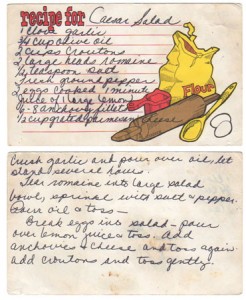 recipe for Caesar Salad
1 clove garlic
3/4 cup olive oil
2 cups croutons
2 large heads romaine
1/2 teaspoon salt
Fresh ground pepper
2 eggs cooked 1 minute
juice of 1 large lemon
6-8 anchovy fillets
1/2 cup grated parmesan cheese
Flour
Crush garlic and pour over oil, let
stand several hours.
Tear romaine into large salad
bowl, sprinkle with salt & pepper.
Pour oil & toss.
Break eggs in salad - pour
over lemon juice & toss. Add
anchovies & cheese and toss again.
add croutons and toss gently.